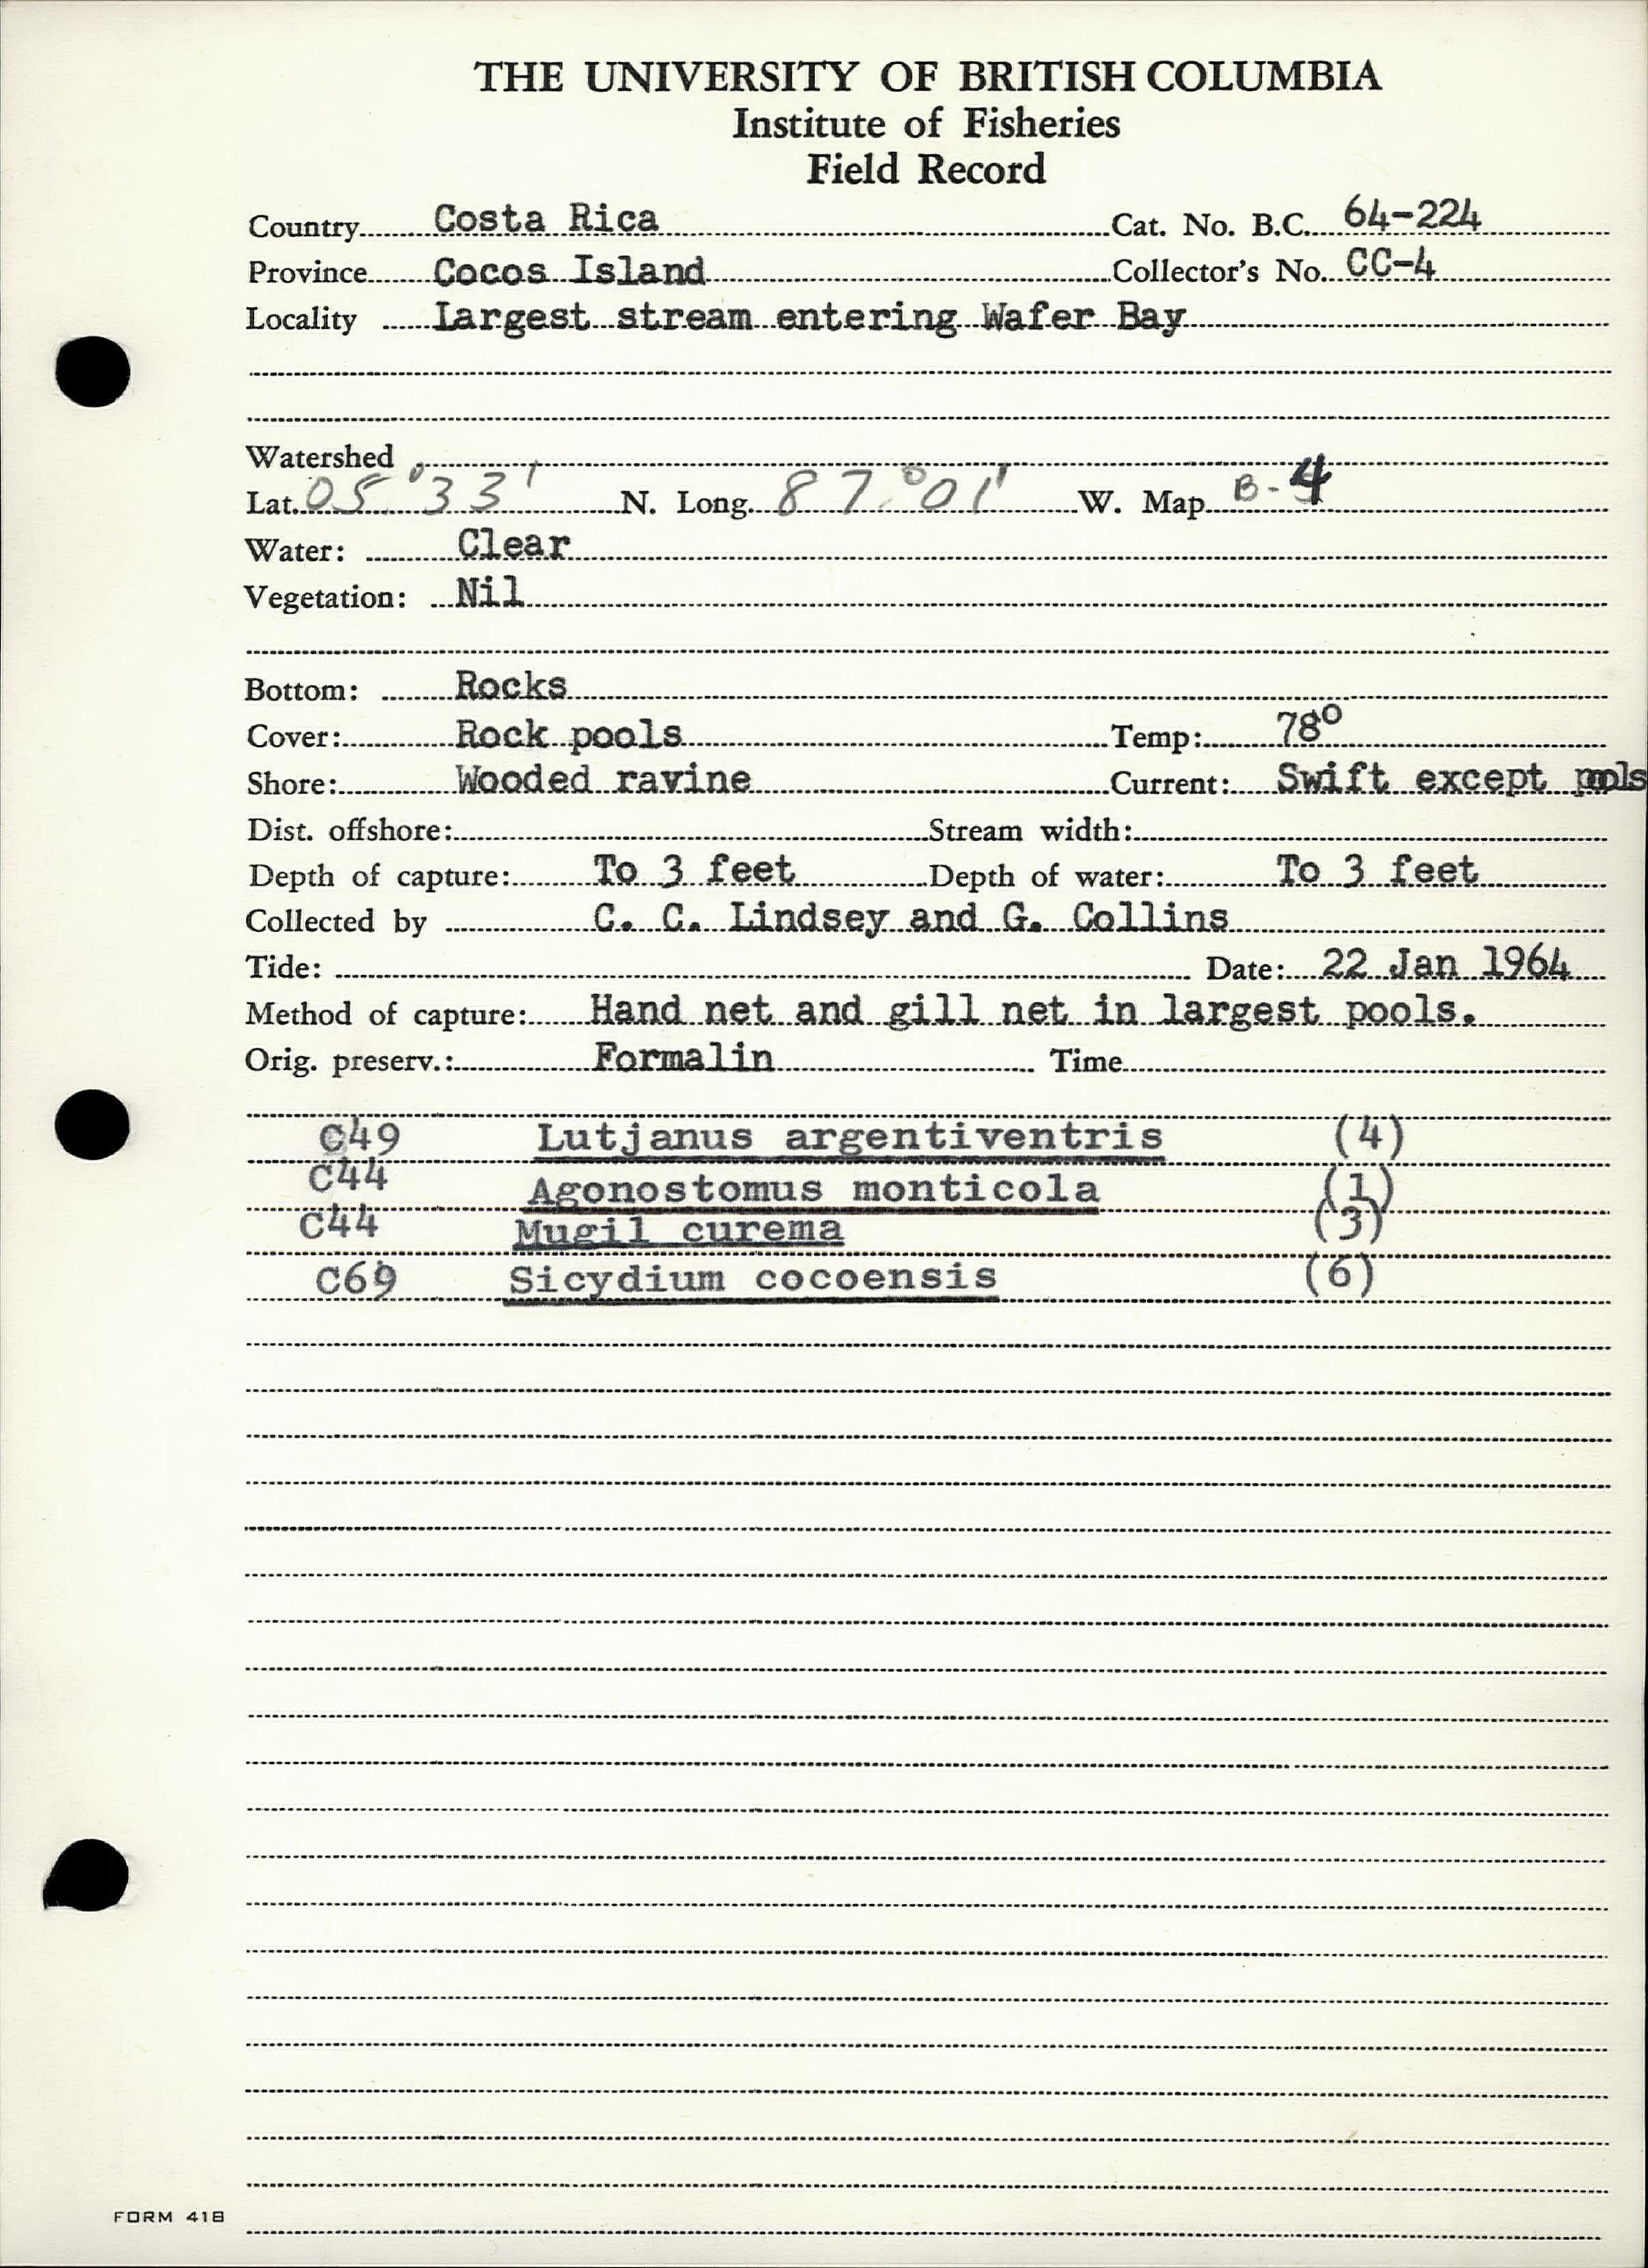 THE UNIVERSITY OF BRITISH COLUMBIA
Institute of Fisheries
Field Record
Country Costa Rica Cat. No. B.C. 64-224
Province Cocos Island Collector's No. CC-4
Locality Largest stream entering Wafer Bay
Watershed
Lat. 05°33' N. Long. 87°01' W. Map B-4
Water: Clear
Vegetation: Nil
Bottom: Rocks
Cover: Rock pools Temp: 78°
Shore: Wooded ravine Current: Swift except pools
Dist. offshore: Stream width:
Depth of capture: To 3 feet Depth of water: To 3 feet
Collected by C. C. Lindsey and G. Collins
Tide: Date: 22 Jan 1964
Method of capture: Hand net and gill net in largest pools.
Orig. preserv.: Formalin Time
C49 Lutjanus argentiventris (4)
C44 Agonostomus monticola (1)
C44 Mugil curema (3)
C69 Sicydium cocoensis (6)
FORM 418